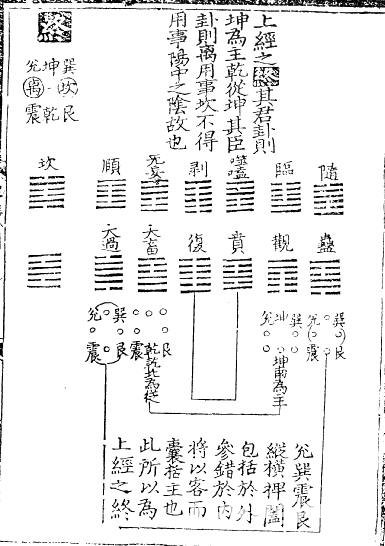 上經之終其君卦則
坤為主乾從坤其臣
卦則离用事坎不得
用事陽中之陰故也
終
巽 坤 兌
艮 坎 离
乾 震
隨 臨 噬嗑 剥 无妄 順 坎
蠱 觀 賁 復 大畜 大過
巽 坤 兌 巽 兌
艮 震 坤為主
艮 乾乾此為從 巽 兌
艮 震
兌巽震艮
縱橫捭闔
包括於外
參錯於内
將以客而
囊括主也
此所以為
上經之終